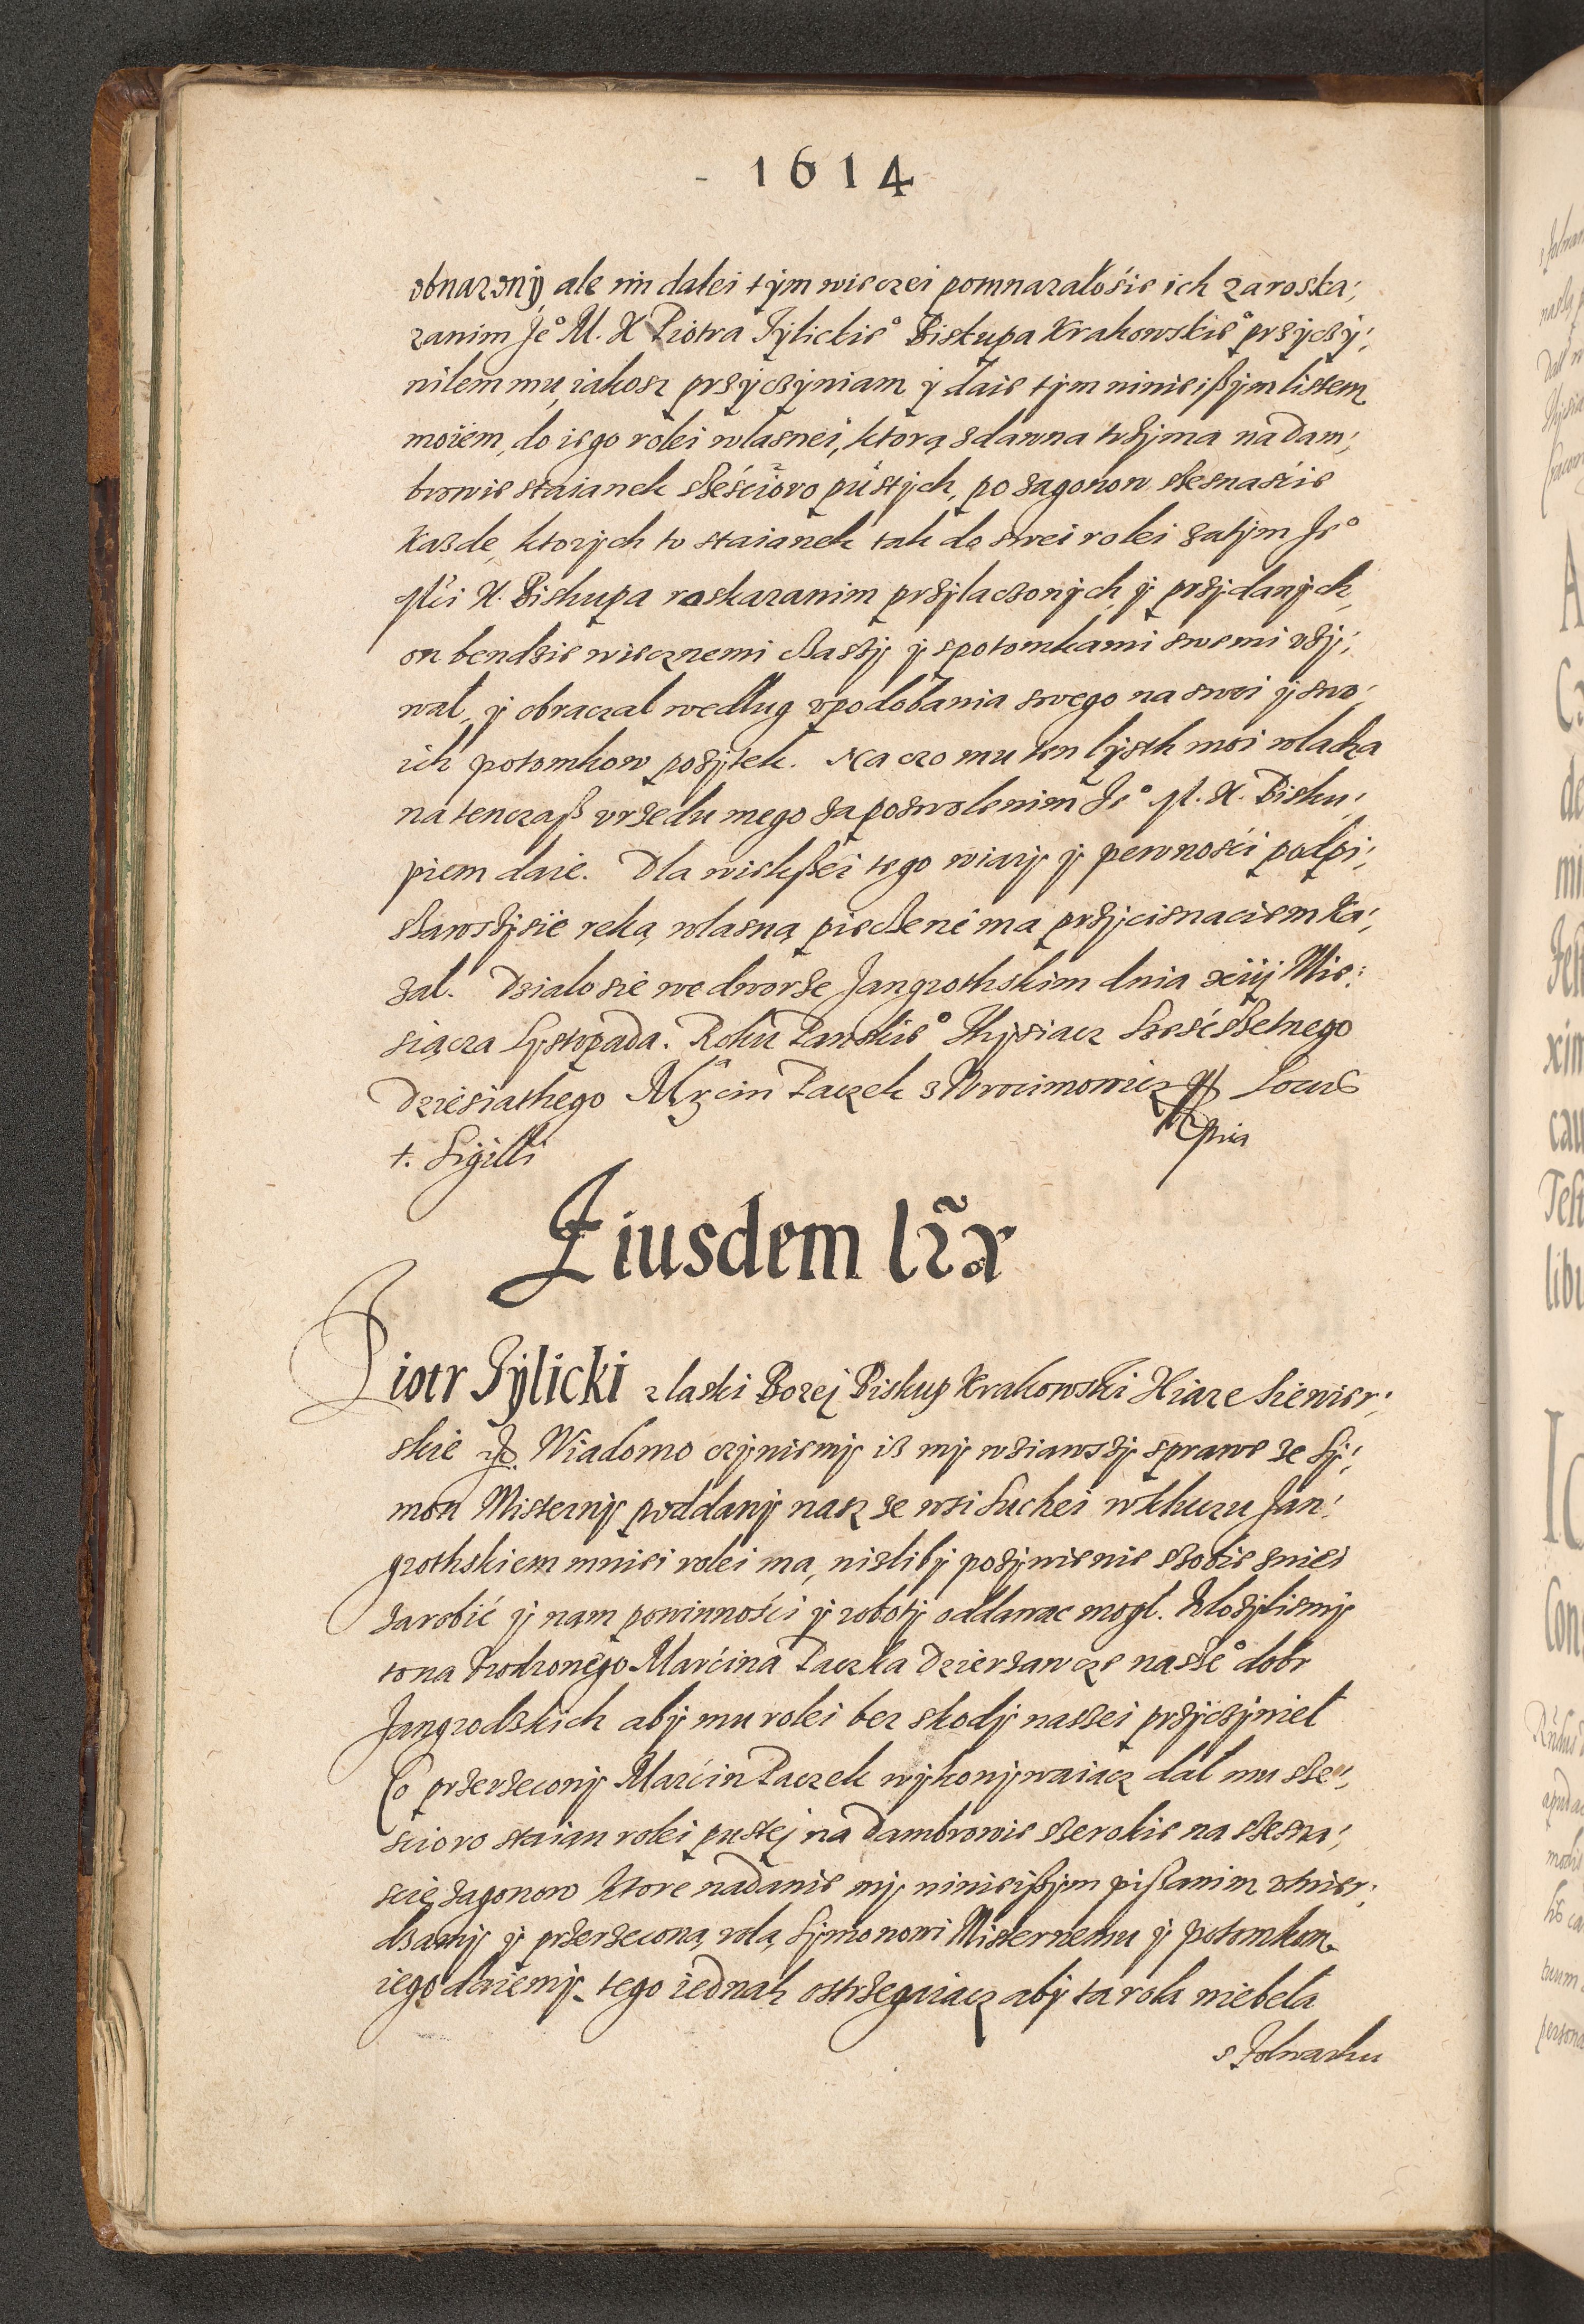 - 1614
obnazony, ale im dalei tym wieczei pomnazałośie ich zaroska;
zanim Je° M. X Piotra Tylickie° Biskupa Krakowskie° przyczy;
nilem mu, iakosz przyczyniam y daie tym ninieißym listem
moiem, do iego rolei wlasnei, ktorą zdawna trzyma na Dam;
browie staianek sześćioro pustych, po zagonow szesnaśćie
Kazde, ktorych to staianek tak do swei rolei zatym Je°
Mći X. Biskupa roskazanim przylaczonych, y przydanych,
on bendzie wiecznemi czassy y spotomkami swemi vzy;
wał, y obraczal według vpodobania swego na swei y swo;
ich potomkow pozytek. Na czo mu ten lysth moi wladza
na tenczaß vrzedu mego za pozwolenim Je° M. X. Bisku;
piem daie. Dla wiekßei tego wiary y pewnośći podpi;
szawszysie reką wlasną pieczenć ma przycisnaciem ka;
zal. Dzialo sie we dworze Jangrothskim dnia xiij Mie:
siącza Lystopada. Roku Panskie° Thysiacz Sześćsetnego
Dziesiathego Mrcin Paczek z Wrocimowicz Locus
mpria
†. Sigilli
Eiusdem lrãr
Piotr Tylicki z laski Bozej Biskup Krakowski Xiaze Siewier;
skie Wiadomo czyniemy iß my wziawszy sprawe ze Sy;
mon Misterny poddany nasz ze wsi Suchei w kluczu Jan;
grothskiem mniei rolei ma, nizliby pozywienie szobie zniei
zarobić y nam powinnośći y roboty oddawac mogl. Wlozylismy
to na Vrodzonego Marćina Paczka Dzierzawcze nasze° dobr
Jangrodzkich aby mu rolei bez skody naszei przyczynieł
Co przerzeczony Marćin Paczek wykonywaiacz dał mu sze;
scioro staian rolei pustej na Dambrowie szerokie na szesna;
scie zagonow Ktore nadanie my ninieißym pißanim vtwier;
dzamy y przerzeconą rolą Symonowi Misternemu y potomkom
iego daiemy tego iednak ostrzegaiacz aby ta rola niebeła
s Folwarku